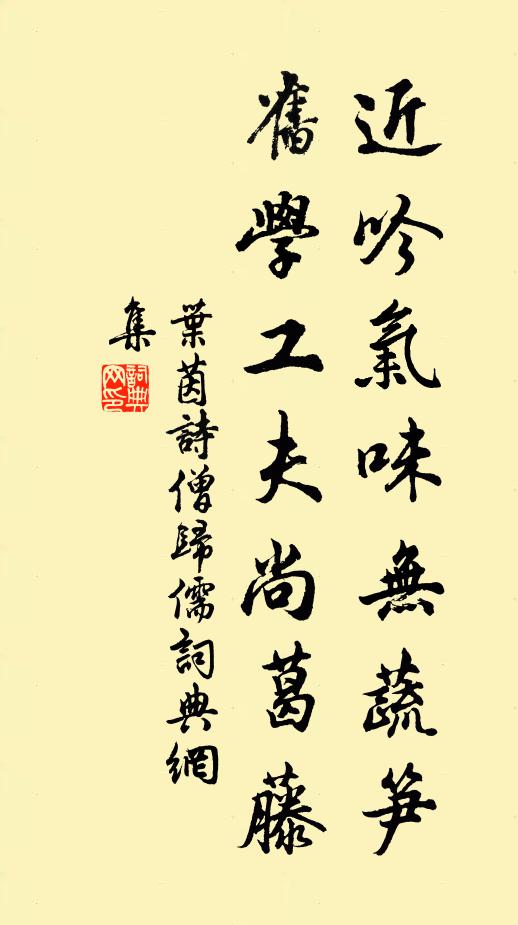 近吟氣味無蔬笋
舊學工夫尚葛藤
葉茵詩僧歸儒詞典網
集
詞典
网印